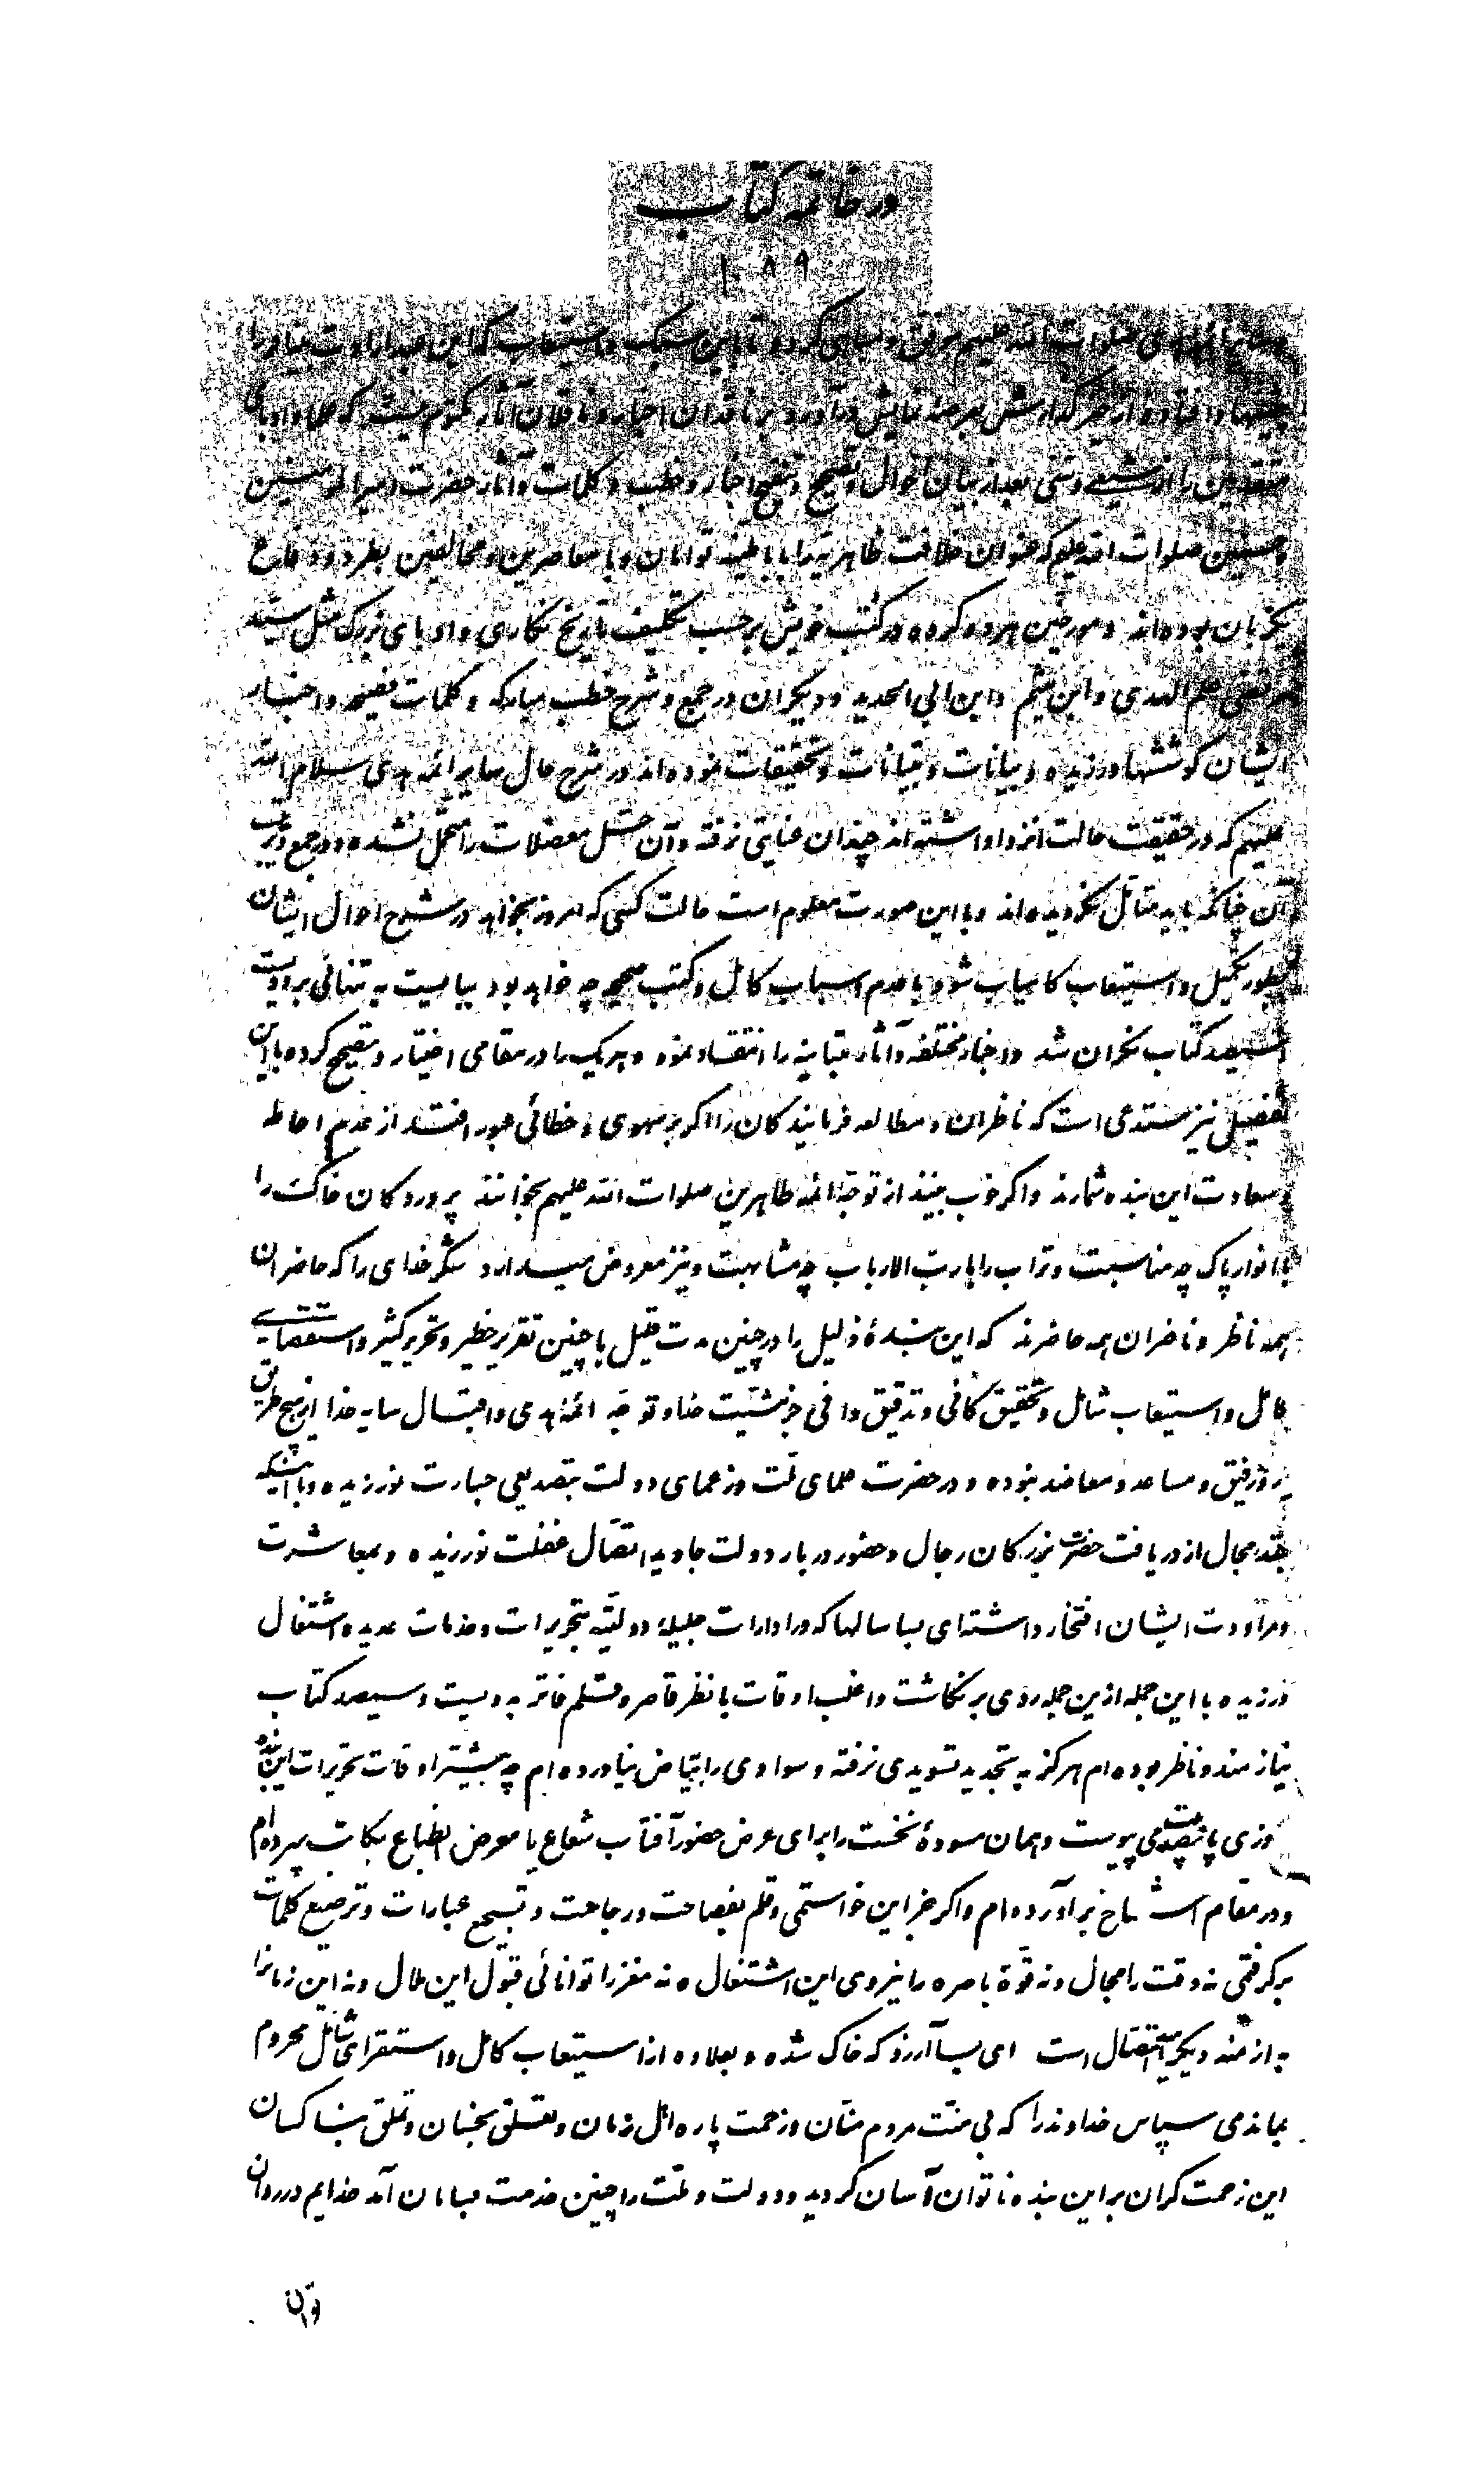 در خاتمه کتاب
۱۰۸۹
و سایر ائمه هدی صلوات الله علیهم موفق و مباهی گردد تا باین سبک و استیعاب که این عبد
و از گذارش بعرصه نمایش درآورد بر ناقدان اخبار و ناقلان آثار مکتوم نیست که علما و ادبای
متقدمین را از شیعی و سنی بعد از بیان احوال و تصحیح و تنقیح اخبار و خطب و کلمات و آثار حضرت امیرالمومنین
و حسنین صلوات الله علیهم که عنوان خلافت ظاهریه را با باطنیه توامان و با معاصرین و مخالفین بطرد و وقایع
نگرنان بوده‌اند و مورخین هر دو گروه در کتب خویش برحسب تکلیف تاریخ نگاری و ادبای بزرگ مثل سید
مرتضی علم الهدی و ابن میثم و ابن ابی الحدید و دیگران در جمع و شرح خطب مبارکه و کلمات فصیحه و اخبار
ایشان کوششها ورزیده و بیانات و تبیانات و تحقیقات نموده‌اند در شرح حال سایر ائمه هدی سلام الله
علیهم که در حقیقت حالت انزوا داشته‌اند چندان عنایتی نرفته و آن حمل معضلات را متحمل نشده و در جمع و ترتیب
آن چنانکه باید متقبل نگردیده‌اند و با این صورت معلوم است حالت کسی که امروز بخواهد در شرح احوال ایشان
بطور تکمیل و استیعاب کامیاب شود با عدم اسباب کامل و کتب صحیحه چه خواهد بود میبایست به تنهائی بر دویست
سیصد کتاب نگران شد و اخبار مختلفه و آثار متباینه را انتقاد نمود و هریک را در مقامی اختیار و تصحیح کرده با این
تفصیل نیز مستدعی است که ناظران و مطالعه فرمایندگان را اگر بر سهوی و خطائی عبور افتد از عدم احاطه
و سعادت این بنده شمارند و اگر خوب بینند از توجه ائمه طاهرین صلوات الله علیهم بخوانند پروردگان خاک را
با انوار پاک چه مناسبت و تراب را با رب الارباب چه مشابهت و نیز معروض میدارد شکر خدای را که حاضران
همه ناظر و ناظران همه حاضرند که این بندهٔ ذلیل را در چنین مدت قلیل با چنین تقریر خطیر و تحریر کثیر و استقصای
کامل و استیعاب شامل و تحقیق کافی و تدقیق وافی جز مشیت خدا و توجه ائمه هدی و اقبال سایه خدا از هیچ طریق
رفیق و مساعد و معاضد نبوده و در حضرت علمای ملت و زعمای دولت بتصدیعی جسارت نورزیده و با اینکه
بقدر مجال از دریافت حضرت بزرگان رجال و حضور دربار دولت جاوید اتصال غفلت نورزیده و بمعاشرت
و مراودت ایشان افتخار داشته‌ای بسا سالها که در ادارات جلیله دولتیه بتحریرات و خدمات عدیده اشتغال
ورزیده با این جمله ازین جمله روی بر نگاشت و اغلب اوقات با نظر قاصر و قلم فاتر بدویست و سیصد کتاب
نیازمند و ناظر بوده‌ام هرگز به تجدید تسویدی نرفته و سوادی را ببیاض نیاورده‌ام چه بیشتر اوقات تحریرات این بنده
روزی پانصد بیت می پیوست و همان مسودهٔ نخست را برای عرض حضور آفتاب شعاع یا معرض انطباع بکاتب سپرده‌ام
و در مقام استنساخ برآورده‌ام و اگر جز این خواستمی و قلم بفصاحت و رجاحت و تسجیع عبارات و ترصیع کلمات
برگرفتی نه وقت را مجال و نه قوهٔ باصره را نیروی این اشتغال و نه مغز را توانائی قبول این ملال و نه این زمانرا
بازمنه دیگر امید اتصال است ای بسا آرزو که خاک شده و بعلاوه از استیعاب کامل و استقرای شامل محروم
بماندی سپاس خداوند را که بی منت مردم منان و زحمت پاره اهل زمان و تعلق بخسان و تملق بناکسان
این زحمت گران بر این بنده ناتوان آسان گردید و دولت و ملت را چنین خدمت بپایان آمد خدایم در روان
و آن